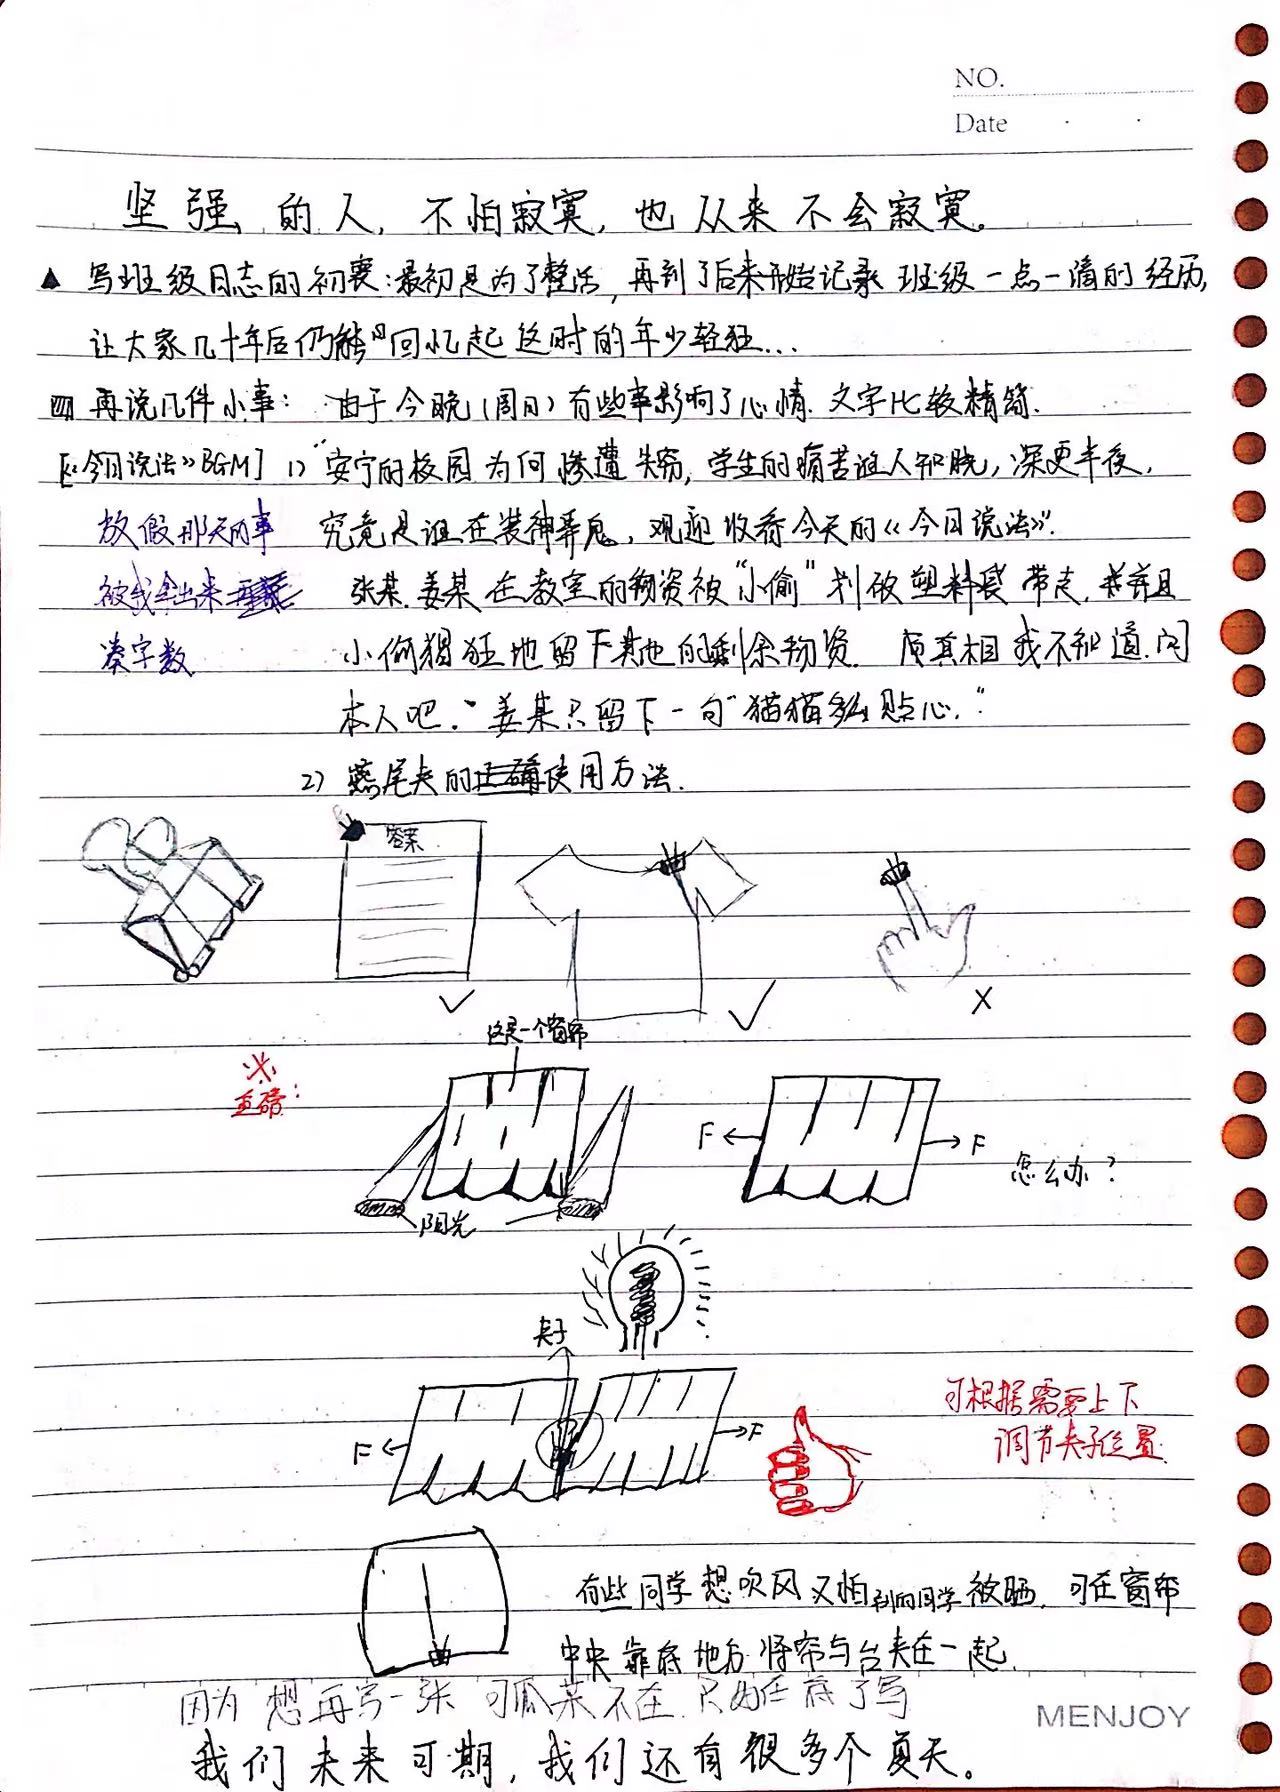 NO.
Date
坚强的人，不怕寂寞，也从来不会寂寞。
▲ 写班级日志的初衷：最初是为了整活，再到了后来开始记录班级一点一滴的经历，
让大家几十年后仍能回忆起这时的年少轻狂...
再说几件小事： 由于今晚（周日）有些事影响了心情.文字比较精简.
[《今日说法》BGM] 1) "安宁的校园为何惨遭失窃，学生的痛苦谁人知晓，深更半夜，
放假那天的事 究竟是谁在装神弄鬼，欢迎收看今天的《今日说法》".
被我拿出来 张某.姜某在教室的物资被"小偷"划破塑料袋带走.并且
凑字数 小偷猖狂地留下其他的剩余物资. 真相我不知道.问
本人吧." 姜某只留下一句"猫猫多么贴心."
2) 燕尾夹的正确使用方法.
答案
✓ ✓ X
这是一个窗帘
※
重磅：
F F
怎么办？
阳光
夹子
可根据需要上下
调节夹子位置.
F F
有些同学想吹风又怕别的同学被晒.可在窗帘
中央靠底地方.将帘与台夹在一起.
因为想再写一张 可 不在.只好在底下写
MENJOY
我们未来可期，我们还有很多个夏天。